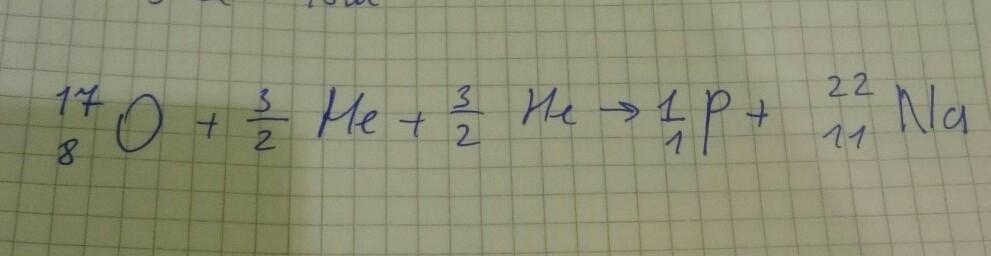 17 8 O + 3 2 He + 3 2 He → 1 1 p + 22 11 Na